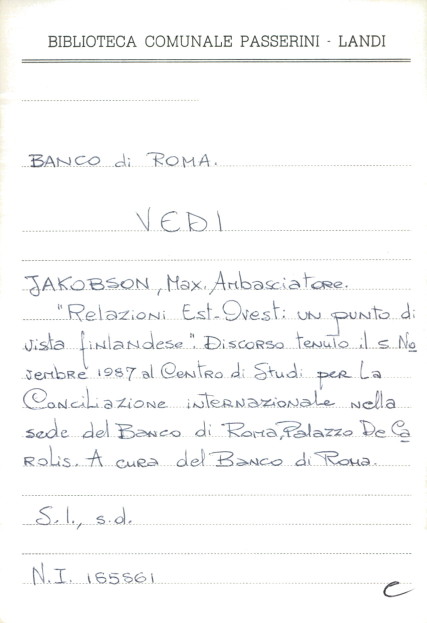 BIBLIOTECA COMUNALE PASSERINI - LANDI
BANCO di ROMA.
VEDI
JAKOBSON, Max. Ambasciatore.
"Relazioni Est-Ovest: un punto di
vista finlandese". Discorso tenuto il 5 No
vembre 1987 al Centro di Studi per La
Conciliazione internazionale nella
sede del Banco di Roma, Palazzo De Ca
rolis. A cura del Banco di Roma.
S.l., s.d.
N.I. 165561
C